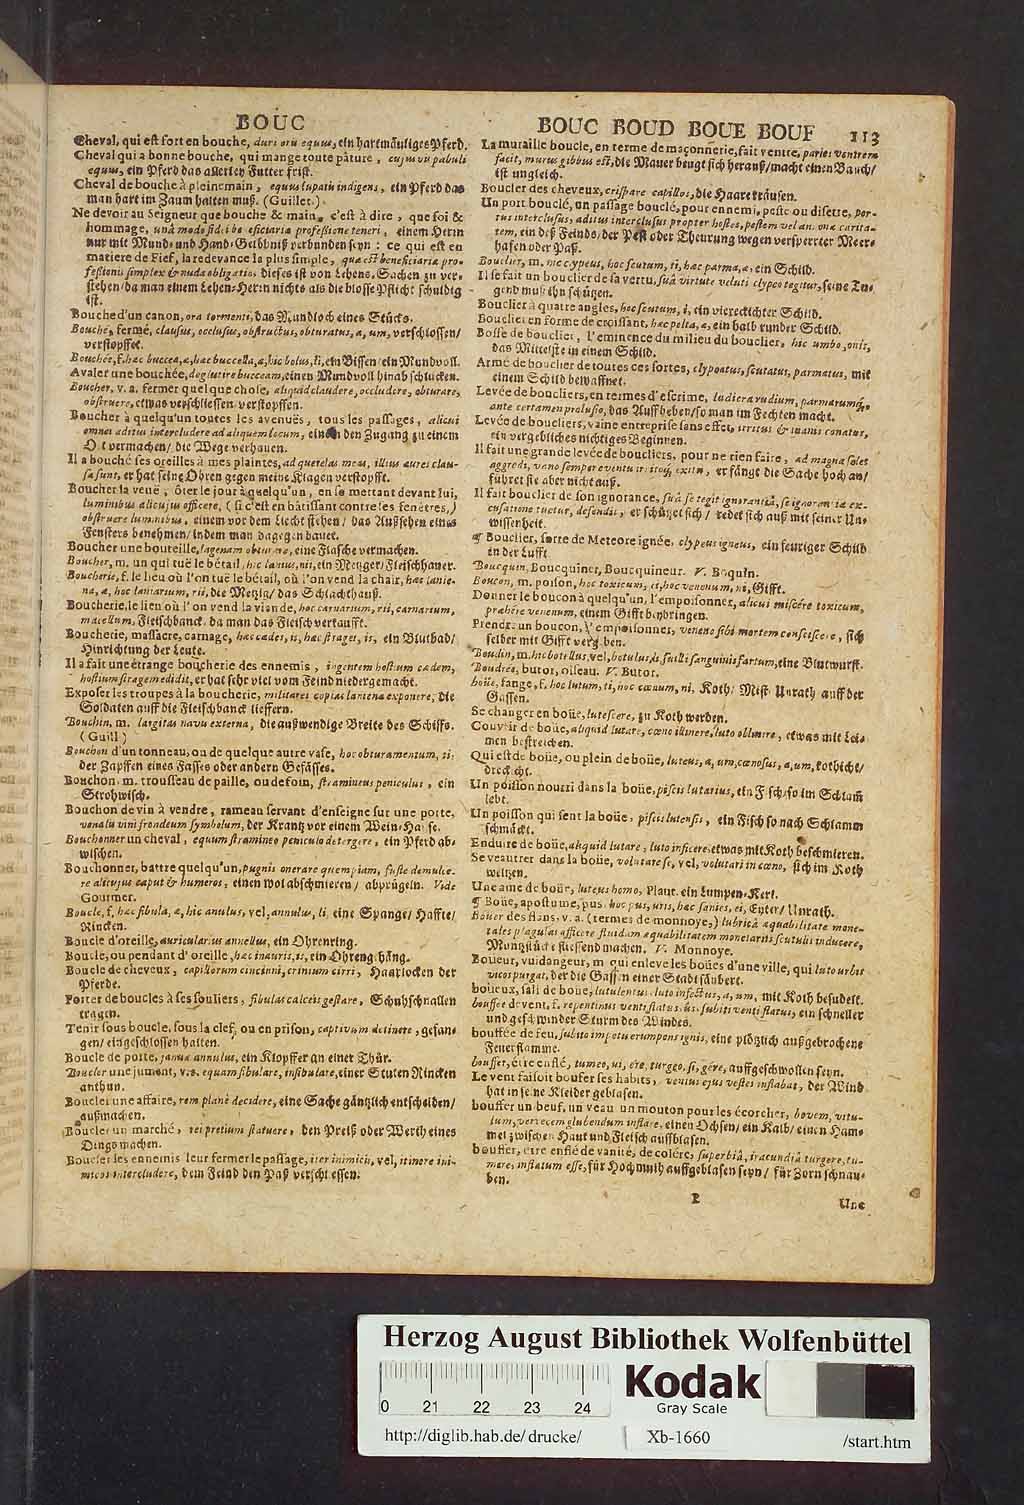 BOUC
Cheval, qui est fort en bouche, duri oris equus, ein hartmäuliges Pferd.
Cheval qui a bonne bouche, qui mange toute pâture, cujusvis pabuli
equus, ein Pferd das allerley Futter frist.
Cheval de bouche à pleine main, equus lupatis indigens, ein Pferd das
man hart im Zaum halten muß. (Guillet.)
Ne devoir au Seigneur que bouche & main, c'est à dire, que foi &
hommage, unâ modo fidei beneficiaria professione teneri, einem Herrn
nur mit Mund- und Hand-Gelübniß verbunden seyn: ce qui est en
matiere de Fief, la redevance la plus simple, quæ est beneficiaria pro-
fessionis simplex & nuda obligatio, dieses ist von Lehens-Sachen zu ver-
stehen/da man einem Lehen-Herrn nichts als die blosse Pflicht schuldig
ist.
Bouche d'un canon, ora tormenti, das Mundloch eines Stücks.
Bouché, fermé, clausus, occlusus, obstructus, obturatus, a, um, verschlossen/
verstopffet.
Bouchée, f. hæc buccea, æ, hæc buccella, æ, hic bolus, li, ein Bissen/ein Mundvoll.
Avaler une bouchée, deglutire bucceam, einen Mundvoll hinab schlucken.
Boucher, v. a. fermer quelque chose, aliquid claudere, occludere, obturare,
obstruere, etwas verschliessen/verstopffen.
Boucher à quelqu'un toutes les avenuës, tous les passages, alicui
omnes aditus intercludere ad aliquem locum, einem den Zugang zu einem
Ort vermachen/ die Wege verhauen.
Il a bouché ses oreilles à mes plaintes, ad querelas meas, illius aures clau-
sa sunt, er hat seine Ohren gegen meine Klagen verstopfft.
Boucher la veuë, ôter le jour à quelqu'un, en se mettant devant lui,
luminibus alicujus officere, (si c'est en bâtissant contre les fenêtres,)
obstruere luminibus, einem vor dem Liecht stehen/ das Außsehen eines
Fensters benehmen/ indem man dagegen bauet.
Boucher une bouteille, lagenam obturare, eine Flasche vermachen.
Boucher, m. un qui tuë le bétail, hic lanius, nii, ein Metzger/Fleischhauer.
Boucherie, f. le lieu où l'on tuë le bétail, où l'on vend la chair, hæc lanie-
na, æ, hoc laniarium, rii, die Metzig/ das Schlachthauß.
Boucherie, le lieu où l'on vend la viande, hoc carnarium, rii, carnarium,
macellum, Fleischbanck, da man das Fleisch verkaufft.
Boucherie, massacre, carnage, hæc cædes, is, hæc strages, is, ein Blutbad/
Hinrichtung der Leute.
Il a fait une étrange boucherie des ennemis, ingentem hostium cædem,
hostium stragem edidit, er hat sehr viel vom Feind niedergemacht.
Exposer les troupes à la boucherie, militares copias laniena exponere, die
Soldaten auff die Fleischbanck lieffern.
Bouchin, m. largitas navis externa, die außwendige Breite des Schiffs.
(Guill.)
Bouchon d'un tonneau, ou de quelque autre vase, hoc obturamentum, ti,
der Zapffen eines Fasses oder andern Gefässes.
Bouchon, m. trousseau de paille, ou de foin, stramineus peniculus, ein
Strohwisch.
Bouchon de vin à vendre, rameau servant d'enseigne sur une porte,
venalis vini frondeum symbolum, der Krantz vor einem Wein-Hause.
Bouchonner un cheval, equum stramineo peniculo detergere, ein Pferd ab-
wischen.
Bouchonner, battre quelqu'un, pugnis onerare quempiam, fuste demulce-
re alicujus caput & humeros, einen wol abschmieren/ abprügeln. Vide
Gourmer.
Boucle, f. hæc fibula, æ, hic anulus, vel, annulus, li, eine Spange/ Haffte/
Rincken.
Boucle d'oreille, auricularius annellus, ein Ohrenring.
Boucle, ou pendant d'oreille, hæc inauris, is, ein Ohrengehäng.
Boucle de cheveux, capillorum cincinni, crinium cirri, Haarlocken der
Pferde.
Porter de boucles à ses souliers, fibulas calceis gestare, Schuhschnallen
tragen.
Tenir sous boucle, sous la clef, ou en prison, captivum detinere, gefan-
gen/ eingeschlossen halten.
Boucle de porte, januæ annulus, ein Klopffer an einer Thür.
Boucler une jument, v. a. equam fibulare, infibulare, einer Stuten Rincken
anthun.
Boucler une affaire, rem planè decidere, eine Sache gäntzlich entscheiden/
außmachen.
Boucler un marché, rei pretium statuere, den Preiß oder Werth eines
Dings machen.
Boucler les ennemis, leur fermer le passage, iter inimicis, vel, itinere ini-
micos intercludere, dem Feind den Paß verschliessen.
BOUC BOUD BOUE BOUF 113
La muraille boucle, en terme de maçonnerie, fait ventre, paries ventrem
facit, murus gibbus est, die Mauer beugt sich herauß/macht einen Bauch/
ist ungleich.
Boucler des cheveux, crispare capillos, die Haare kräusen.
Un port bouclé, un passage bouclé, pour ennemi, peste ou disette, por-
tus interclusus, aditus interclusus propter hostes, pestem vel annonæ carita-
tem, ein deß Feinds/der Pest oder Theurung wegen versperreter Meer-
hafen oder Paß.
Bouclier, m. hic clypeus, hoc scutum, ti, hæc parma, æ, ein Schild.
Il se fait un bouclier de la vertu, suâ virtute veluti clypeo tegitur, seine Tu-
gend muß ihn schützen.
Bouclier à quatre angles, hoc scutum, i, ein viereckichter Schild.
Bouclier en forme de croissant, hæc pelta, æ, ein halb runder Schild.
Bosse de bouclier, l'eminence du milieu du bouclier, hic umbo, onis,
das Mittelste in einem Schild.
Armé de bouclier de toutes ces sortes, clypeatus, scutatus, parmatus, mit
einem Schild bewaffnet.
Levée de boucliers, en termes d'escrime, ludicra rudium, parmarumq́;
ante certamen prolusio, das Auffheben/so man im Fechten macht.
Levée de boucliers, vaine entreprise sans effet, irritus & inanis conatus,
ein vergebliches nichtiges Beginnen.
Il fait une grande levée de boucliers, pour ne rien faire, ad magna solet
aggredi, vano semper eventu irritoq́; exitu, er fänge die Sache hoch an/
führet sie aber nicht auß.
Il fait bouclier de son ignorance, suâ se tegit ignorantiâ, se ignorantiæ ex-
cusatione tuetur, defendit, er schützet sich/ redet sich auß mit seiner Un-
wissenheit.
¶ Bouclier, sorte de Meteore ignée, clypeus igneus, ein feuriger Schild
in der Lufft.
Boucquin, Boucquiner, Boucquineur. V. Bouquin.
Boucon, m. poison, hoc toxicum, ci, hoc venenum, ni, Gifft.
Donner le boucon à quelqu'un, l'empoisonner, alicui miscere toxicum,
præbere venenum, einem Gifft beybringen.
Prendre un boucon, s'empoisonner, veneno sibi mortem consciscere, sich
selber mit Gifft vergeben.
Boudin, m. hic botellus, vel, botulus, li, suilli sanguinis fartum, eine Blutwurst.
Boudrée, butor, oiseau. V. Butor.
boüe, fange, f. hoc lutum, ti, hoc cœnum, ni, Koth/ Mist/ Unrath auff der
Gassen.
Se changer en boüe, lutescere, zu Koth werden.
Couvrir de boüe, aliquid lutare, cœno illinere, luto oblinere, etwas mit Lei-
men bestreichen.
Qui est de boüe, ou plein de boüe, luteus, a, um, cœnosus, a, um, kothicht/
dreckicht.
Un poisson nourri dans la boüe, piscis lutarius, ein Fisch/so im Schlam
lebt.
Un poisson qui sent la boüe, piscis lutensis, ein Fisch so nach Schlamm
schmäckt.
Enduire de boüe, aliquid lutare, luto inficere, etwas mit Koth beschmieren.
Se veautrer dans la boüe, volutare se, vel, volutari in cœno, sich im Koth
weltzen.
Une ame de boüe, luteus homo, Plaut. ein Lumpen-Kerl.
¶ Boüe, apostume, pus, hoc pus, uris, hæc sanies, ei, Eyter/ Unrath.
Boüer des flans, v. a. (termes de monnoye,) lubricâ æquabilitate mone-
tales plagulas afficere, fluidam æquabilitatem monetariis scutulis inducere,
Müntzstücke fliessend machen. V. Monnoye.
Boüeur, vuidangeur, m. qui enleve les boües d'une ville, qui luto urbis
vicos purgat, der die Gassen einer Stadt säubert.
boüeux, sali de boüe, lutulentus, luto infectus, a, um, mit Koth besudelt.
bouffée de vent, f. repentinus venti flatus, us, subiti venti flatus, ein schneller
und geschwinder Sturm des Windes.
bouffée de feu, subito impetu erumpens ignis, eine plötzlich außgebrochene
Feuerflamme.
bouffer, être enflé, tumeo, ui, ére, turgeo, si, gére, auffgeschwollen seyn.
Le vent faisoit boufer ses habits, ventus ejus vestes inflabat, der Wind
hat in seine Kleider geblasen.
bouffer un beuf, un veau un mouton pour les écorcher, bovem, vitu-
lum, vervecem glubendum inflare, einen Ochsen/ ein Kalb/ einen Ham-
mel zwischen Haut und Fleisch auffblasen.
bouffer, être enflé de vanité, de colére, superbiâ, iracundiâ turgere, tu-
mere, inflatum esse, für Hochmuth auffgeblasen seyn/ für Zorn schnau-
ben.
P
Une
Herzog August Bibliothek Wolfenbüttel
0 21 22 23 24
Kodak
Gray Scale
http://diglib.hab.de/drucke/ Xb-1660 /start.htm